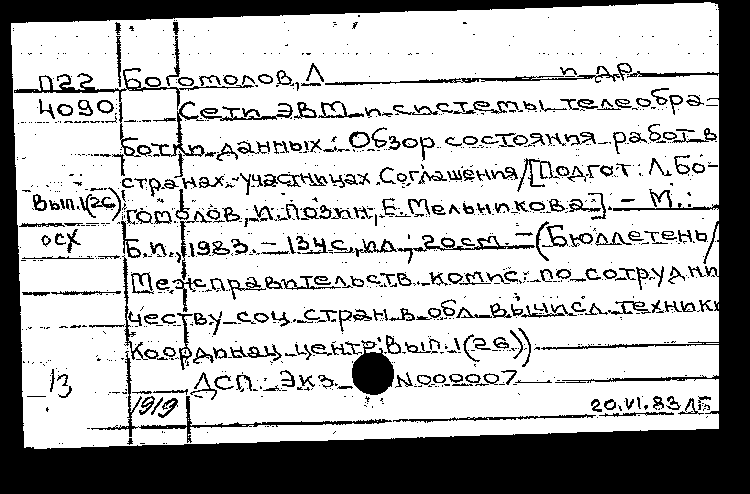 П22 Богомолов, Л и др.
4090 Сети ЭВМ и системы телеобра-
ботки данных: Обзор состояния работ в
странах-участницах Соглашения/[Подгот: Л. Бо-
Вып.1(26) гомолов, И. Позин, Е. Мельникова]. - М.:
осх Б.и., 1983. - 134с, ил; 20см. - (Бюллетень/
Межправительств комис. по сотрудни
честву соц. стран в обл. вычисл. техники
Координац. центр; Вып. 1(26))
13 ДСП. Экз N000007
1919 20.VI.83